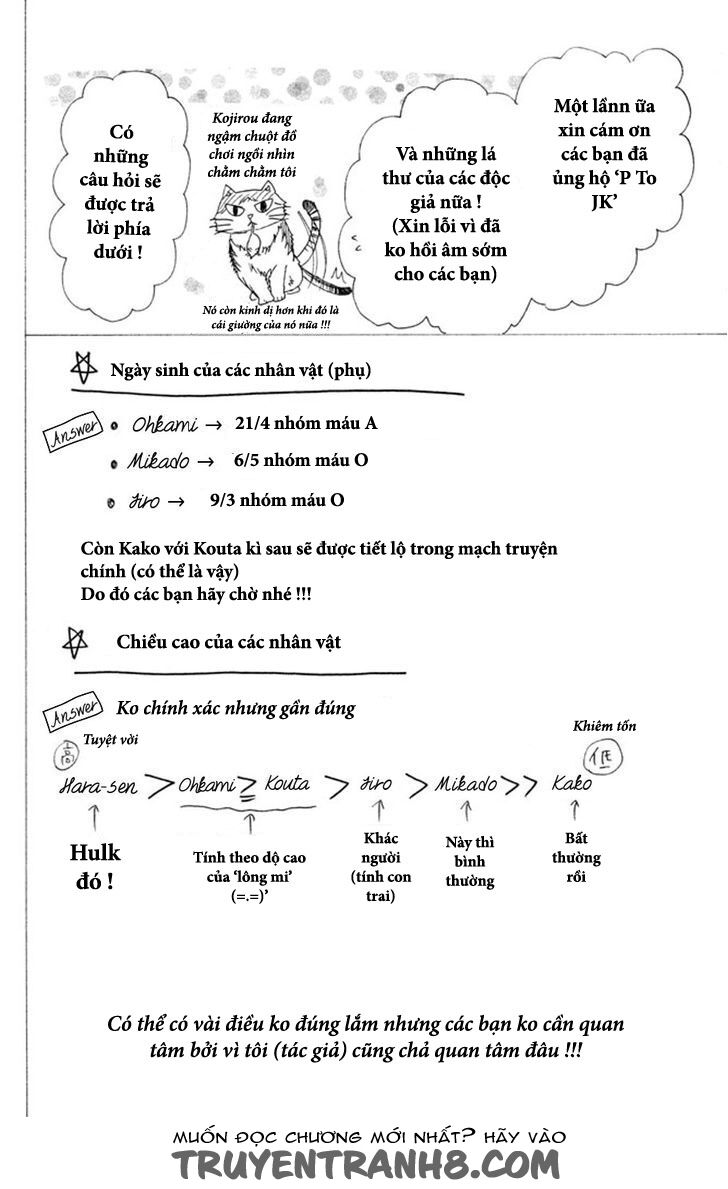 Một lầnn ữa
xin cám ơn
các bạn đã
ủng hộ ‘P To
JK’
Và những lá
thư của các độc
giả nữa !
(Xin lỗi vì đã
ko hồi âm sớm
cho các bạn)
Kojirou đang
ngậm chuột đồ
chơi ngồi nhìn
chằm chằm tôi
Nó còn kinh dị hơn khi đó là
cái giường của nó nữa !!!
Có
những
câu hỏi sẽ
được trả
lời phía
dưới !
Ngày sinh của các nhân vật (phụ)
Answer
Ohkami → 21/4 nhóm máu A
Mikado → 6/5 nhóm máu O
Jiro → 9/3 nhóm máu O
Còn Kako với Kouta kì sau sẽ được tiết lộ trong mạch truyện
chính (có thể là vậy)
Do đó các bạn hãy chờ nhé !!!
Chiều cao của các nhân vật
Answer
Ko chính xác nhưng gần đúng
高 Tuyệt vời
Khiêm tốn
低
Hara-sen > Ohkami ≧ Kouta > Jiro > Mikado >> Kako
Hulk
đó !
Tính theo dộ cao
của ‘lông mi’
(=.=)’
Khác
người
(tính con
trai)
Này thì
bình
thường
Bất
thường
rồi
Có thể có vài điều ko đúng lắm nhưng các bạn ko cần quan
tâm bởi vì tôi (tác giả) cũng chả quan tâm đâu !!!
MUỐN ĐỌC CHƯƠNG MỚI NHẤT? HÃY VÀO
TRUYENTRANH8.COM